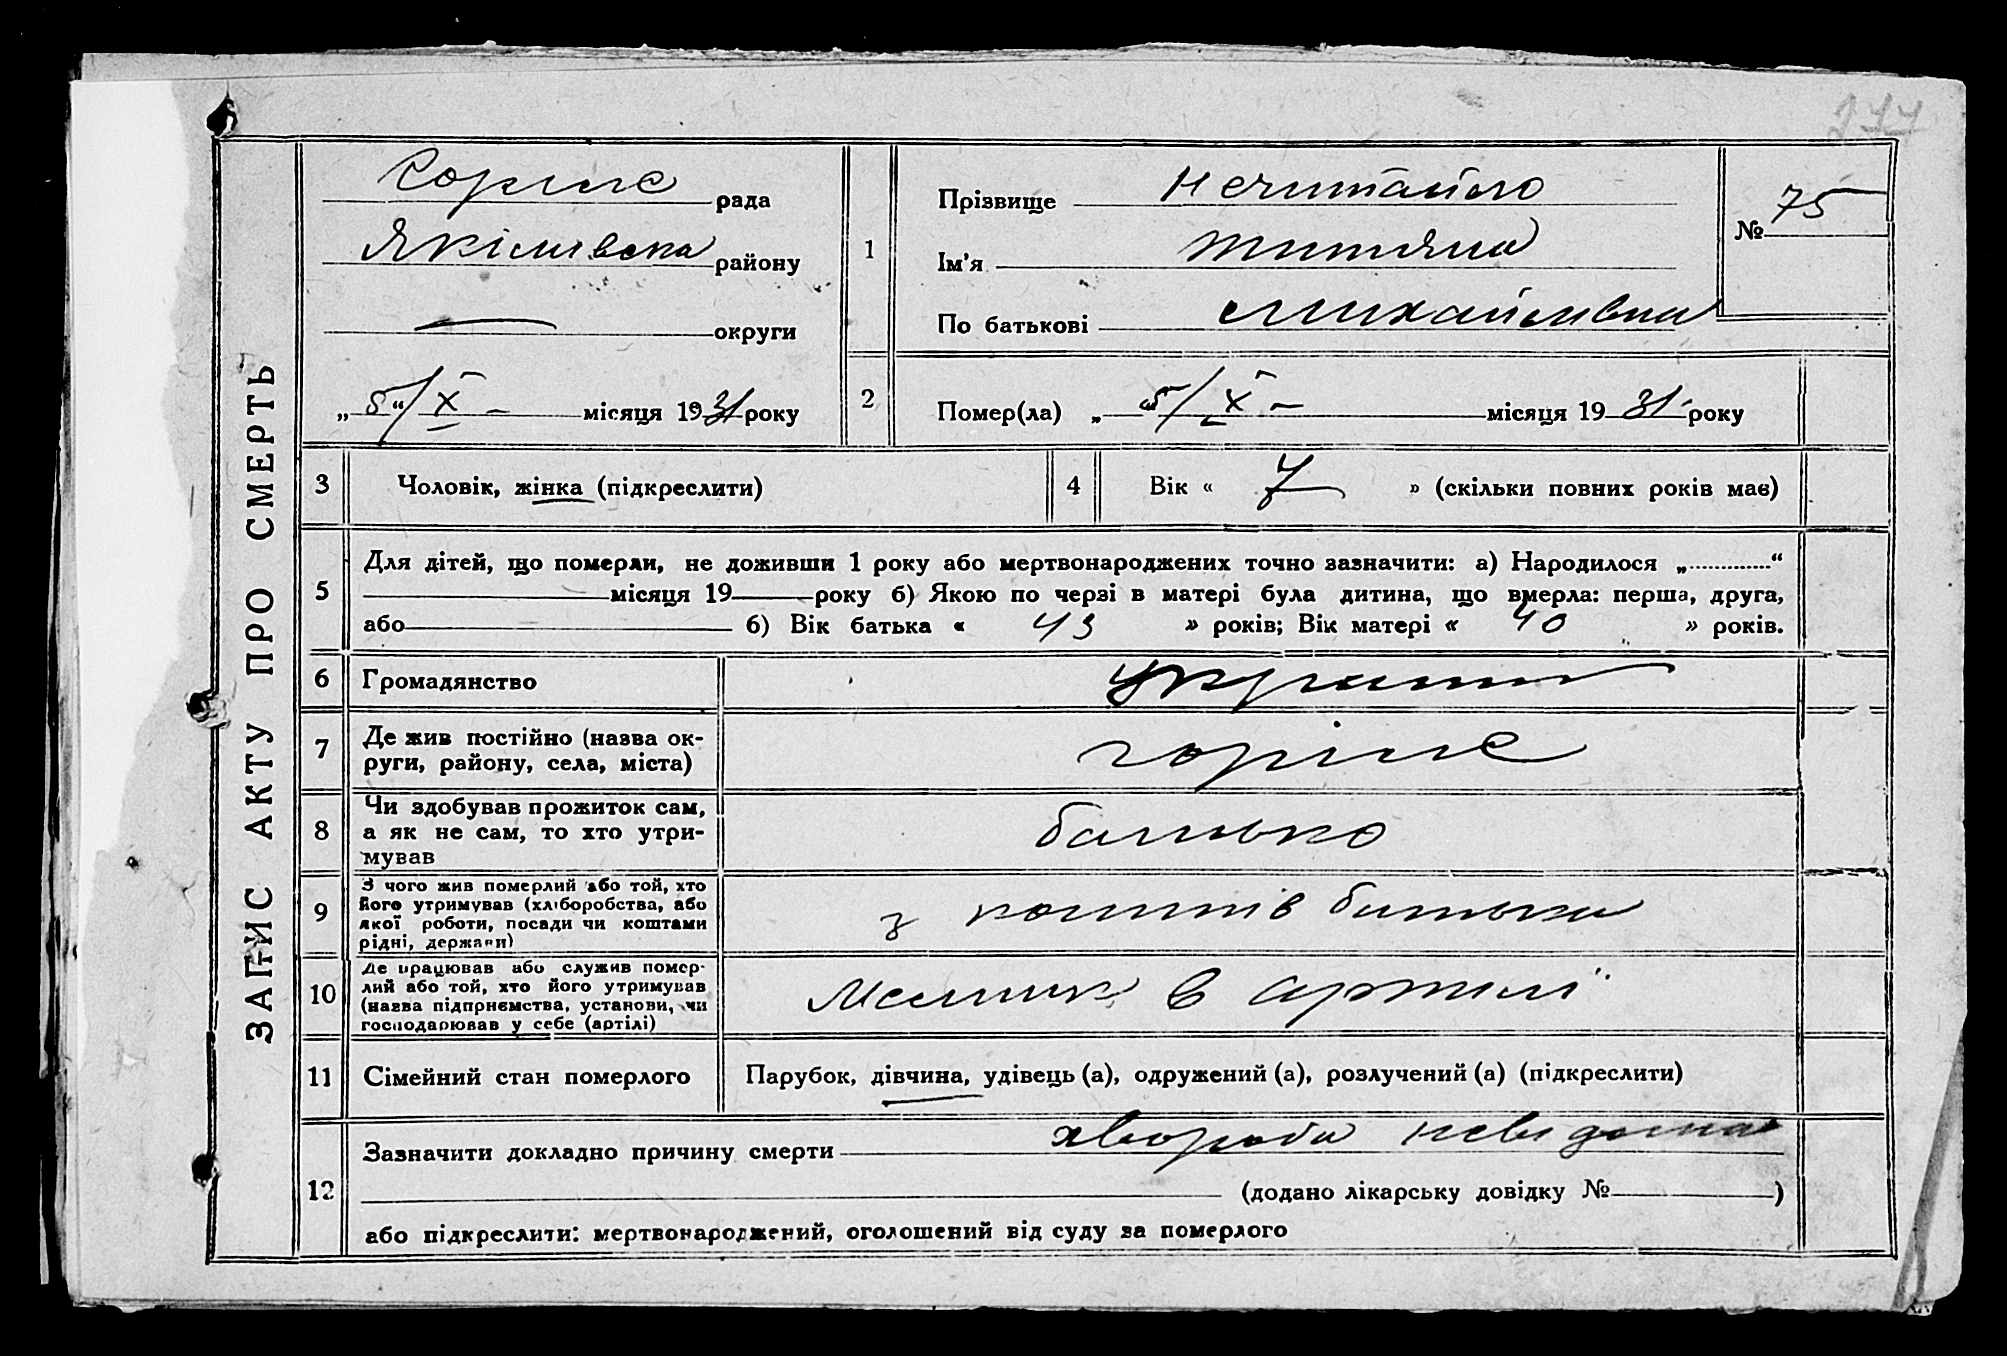 277
ЗАПИС АКТУ ПРО СМЕРТЬ
Горіле рада
району
округи
„ 5 “ / X - місяця 1931 року
1
Прізвище Нечитайло
Ім'я Титяна
По батькові Михайливна
№ 75
2
Помер(ла) „ 5 / X - місяця 1931 року
3
Чоловік, жінка (підкреслити)
4
Вік « 7 » (скільки повних років має)
5
Для дітей, що померли, не доживши 1 року або мертвонароджених точно зазначити: а) Народилося „.............“
місяця 19 року б) Якою по черзі в матері була дитина, що вмерла: перша, друга,
або б) Вік батька « 43 » років; Вік матері « 40 » років.
6
Громадянство
7
Де жив постійно (назва ок-
руги, району, села, міста)
горіле
8
Чи здобував прожиток сам,
а як не сам, то хто утри-
мував
батько
9
З чого жив померлий або той, хто
його утримував (хліборобства, або
якої роботи, посади чи коштами
рідні, держави)
з коштів батька
10
Де працював або служив помер-
лий або той, хто його утримував
(назва підприємства, установи, чи
господарював у себе (артілі)
Мелник в артилі
11
Сімейний стан померлого
Парубок, дівчина, удівець (а), одружений (а), розлучений (а) (підкреслити)
12
Зазначити докладно причину смерти хвороба невідома
(додано лікарську довідку № )
або підкреслити: мертвонароджений, оголошений від суду за померлого